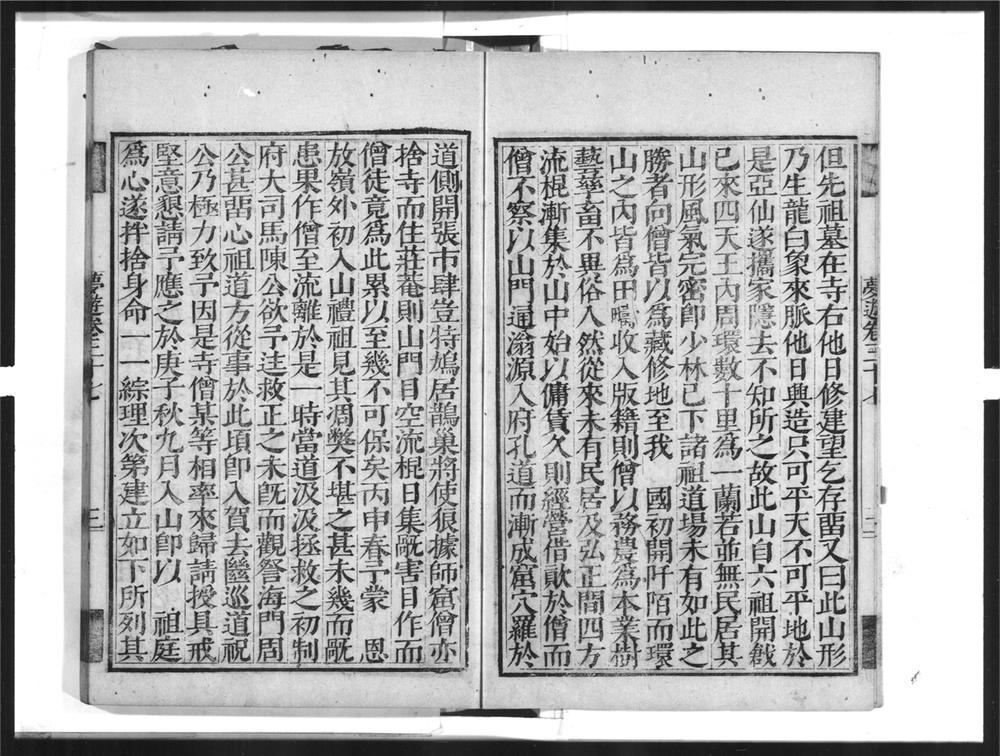 但先祖墓在寺右他日修建望乞存畱又曰此山形
乃生龍白象來脈他日興造只可平天不可平地於
是亞仙遂攜家隱去不知所之故此山自六祖開創
已來四天王內周環數十里爲一蘭若並無民居其
山形風氣完密卽少林已下諸祖道場未有如此之
勝者向僧皆以爲藏修地至我　國初開阡陌而環
山之內皆爲田疇收入版籍則僧以務農爲本業樹
藝畢畜不異俗人然從來未有民居及弘正間四方
流棍漸集於山中始以傭賃久則經營借貲於僧而
僧不察以山門通滃源入府孔道而漸成窟穴羅於
夢遊卷三十七
二
道側開張市肆豈特鳩居鵲巢將使狼據師窟僧亦
捨寺而住莊菴則山門日空流棍日集厰害日作而
僧徒竟爲此累以至幾不可保矣丙申春予蒙　恩
放嶺外初入山禮祖見其凋獘不堪之甚未幾而厰
患果作僧至流離於是一時當道汲汲拯救之初制
府大司馬陳公欲予往救正之未旣而觀詧海門周
公甚畱心祖道方從事於此頃卽入賀去繼巡道祝
公乃極力致予因是寺僧某等相率來歸請授具戒
堅意懇請予應之於庚子秋九月入山卽以　祖庭
爲心遂拌捨身命一一綜理次第建立如下所列其
夢遊卷三十七
三